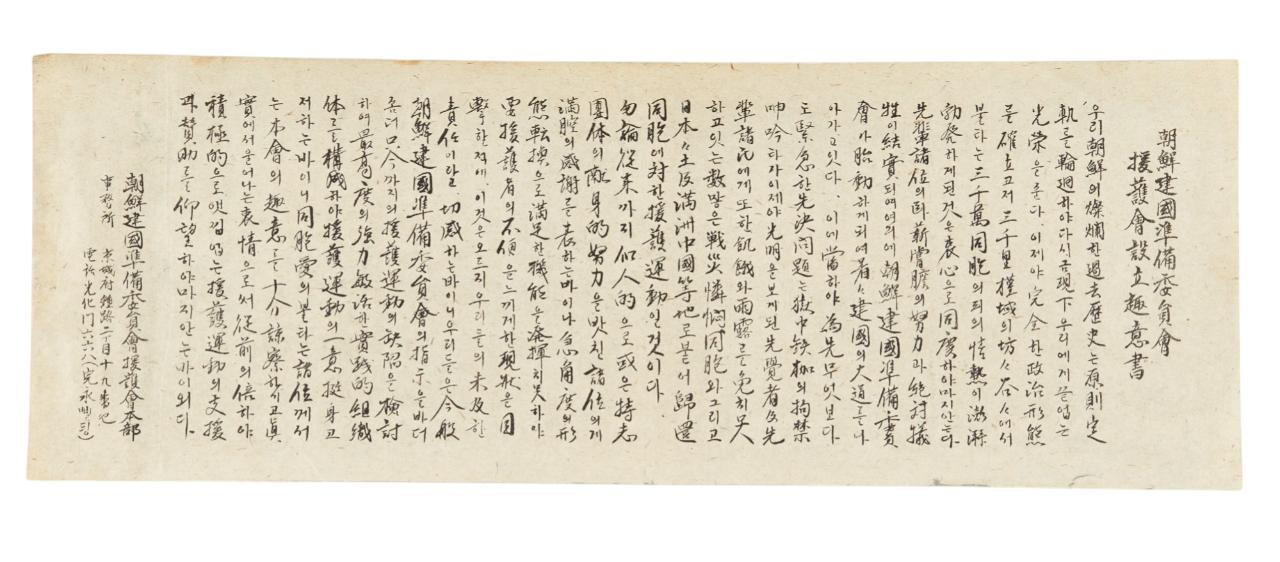 朝鮮建國準備委員會
援護會設立趣意書
우리朝鮮의燦爛한過去歷史는原則定
軌를輪廻하야다시금現下우리에게끝업는
光榮을준다. 이제야完全한政治形態
를確立코저三千里槿域의坊々谷々에서
불타는三千萬同胞의피의情熱이澎湃
勃發하게된것은衷心으로同慶하야마지안는다
先輩諸位의臥薪嘗膽의努力과絶對犧
牲이結實되여여의에朝鮮建國準備委員
會가胎動하게되여着々建國의大道를나
아가고잇다. 이에當하야為先무엇보다
도緊急한先決問題는獄中鉄柵의拘禁
呻吟타가이제야光明을보게된先覺者及先
輩諸氏에게또한飢餓와雨露를免치못
하고잇는数많은戦災憐憫同胞와그리고
日本々土及満洲中國等地로붙어歸還
同胞에対한援護運動일것이다.
勿論従来까지個人的으로或은特志
團体의献身的努力을밧친諸位의게
満腔의感謝를表하는바이나急角度의形
態転換으로満足한機能을発揮치못하야
要援護者의不便을느끼게한現狀을目
擊한제에, 이것은오르지우리들의未及한
責任이라고切感하는바이니우리들은今般
朝鮮建國準備委員會의指示을바더
좀더只今까지의援護運動의缺陷을検討
하여最高度의強力敏活한實践的組織
体를構成하야援護運動의一意挺身코
저하는바이니同胞愛의불타는諸位께서
는本會의趣意를十分諒察하시고眞
實에서울어나는衷情으로써従前의倍하야
積極的으로앳낌업는援護運動의支援
과賛助를仰望하야마지안는바이외다.
朝鮮建國準備委員會援護會本部
事務所 京城府鍾路二丁目十九番地
電話光化門